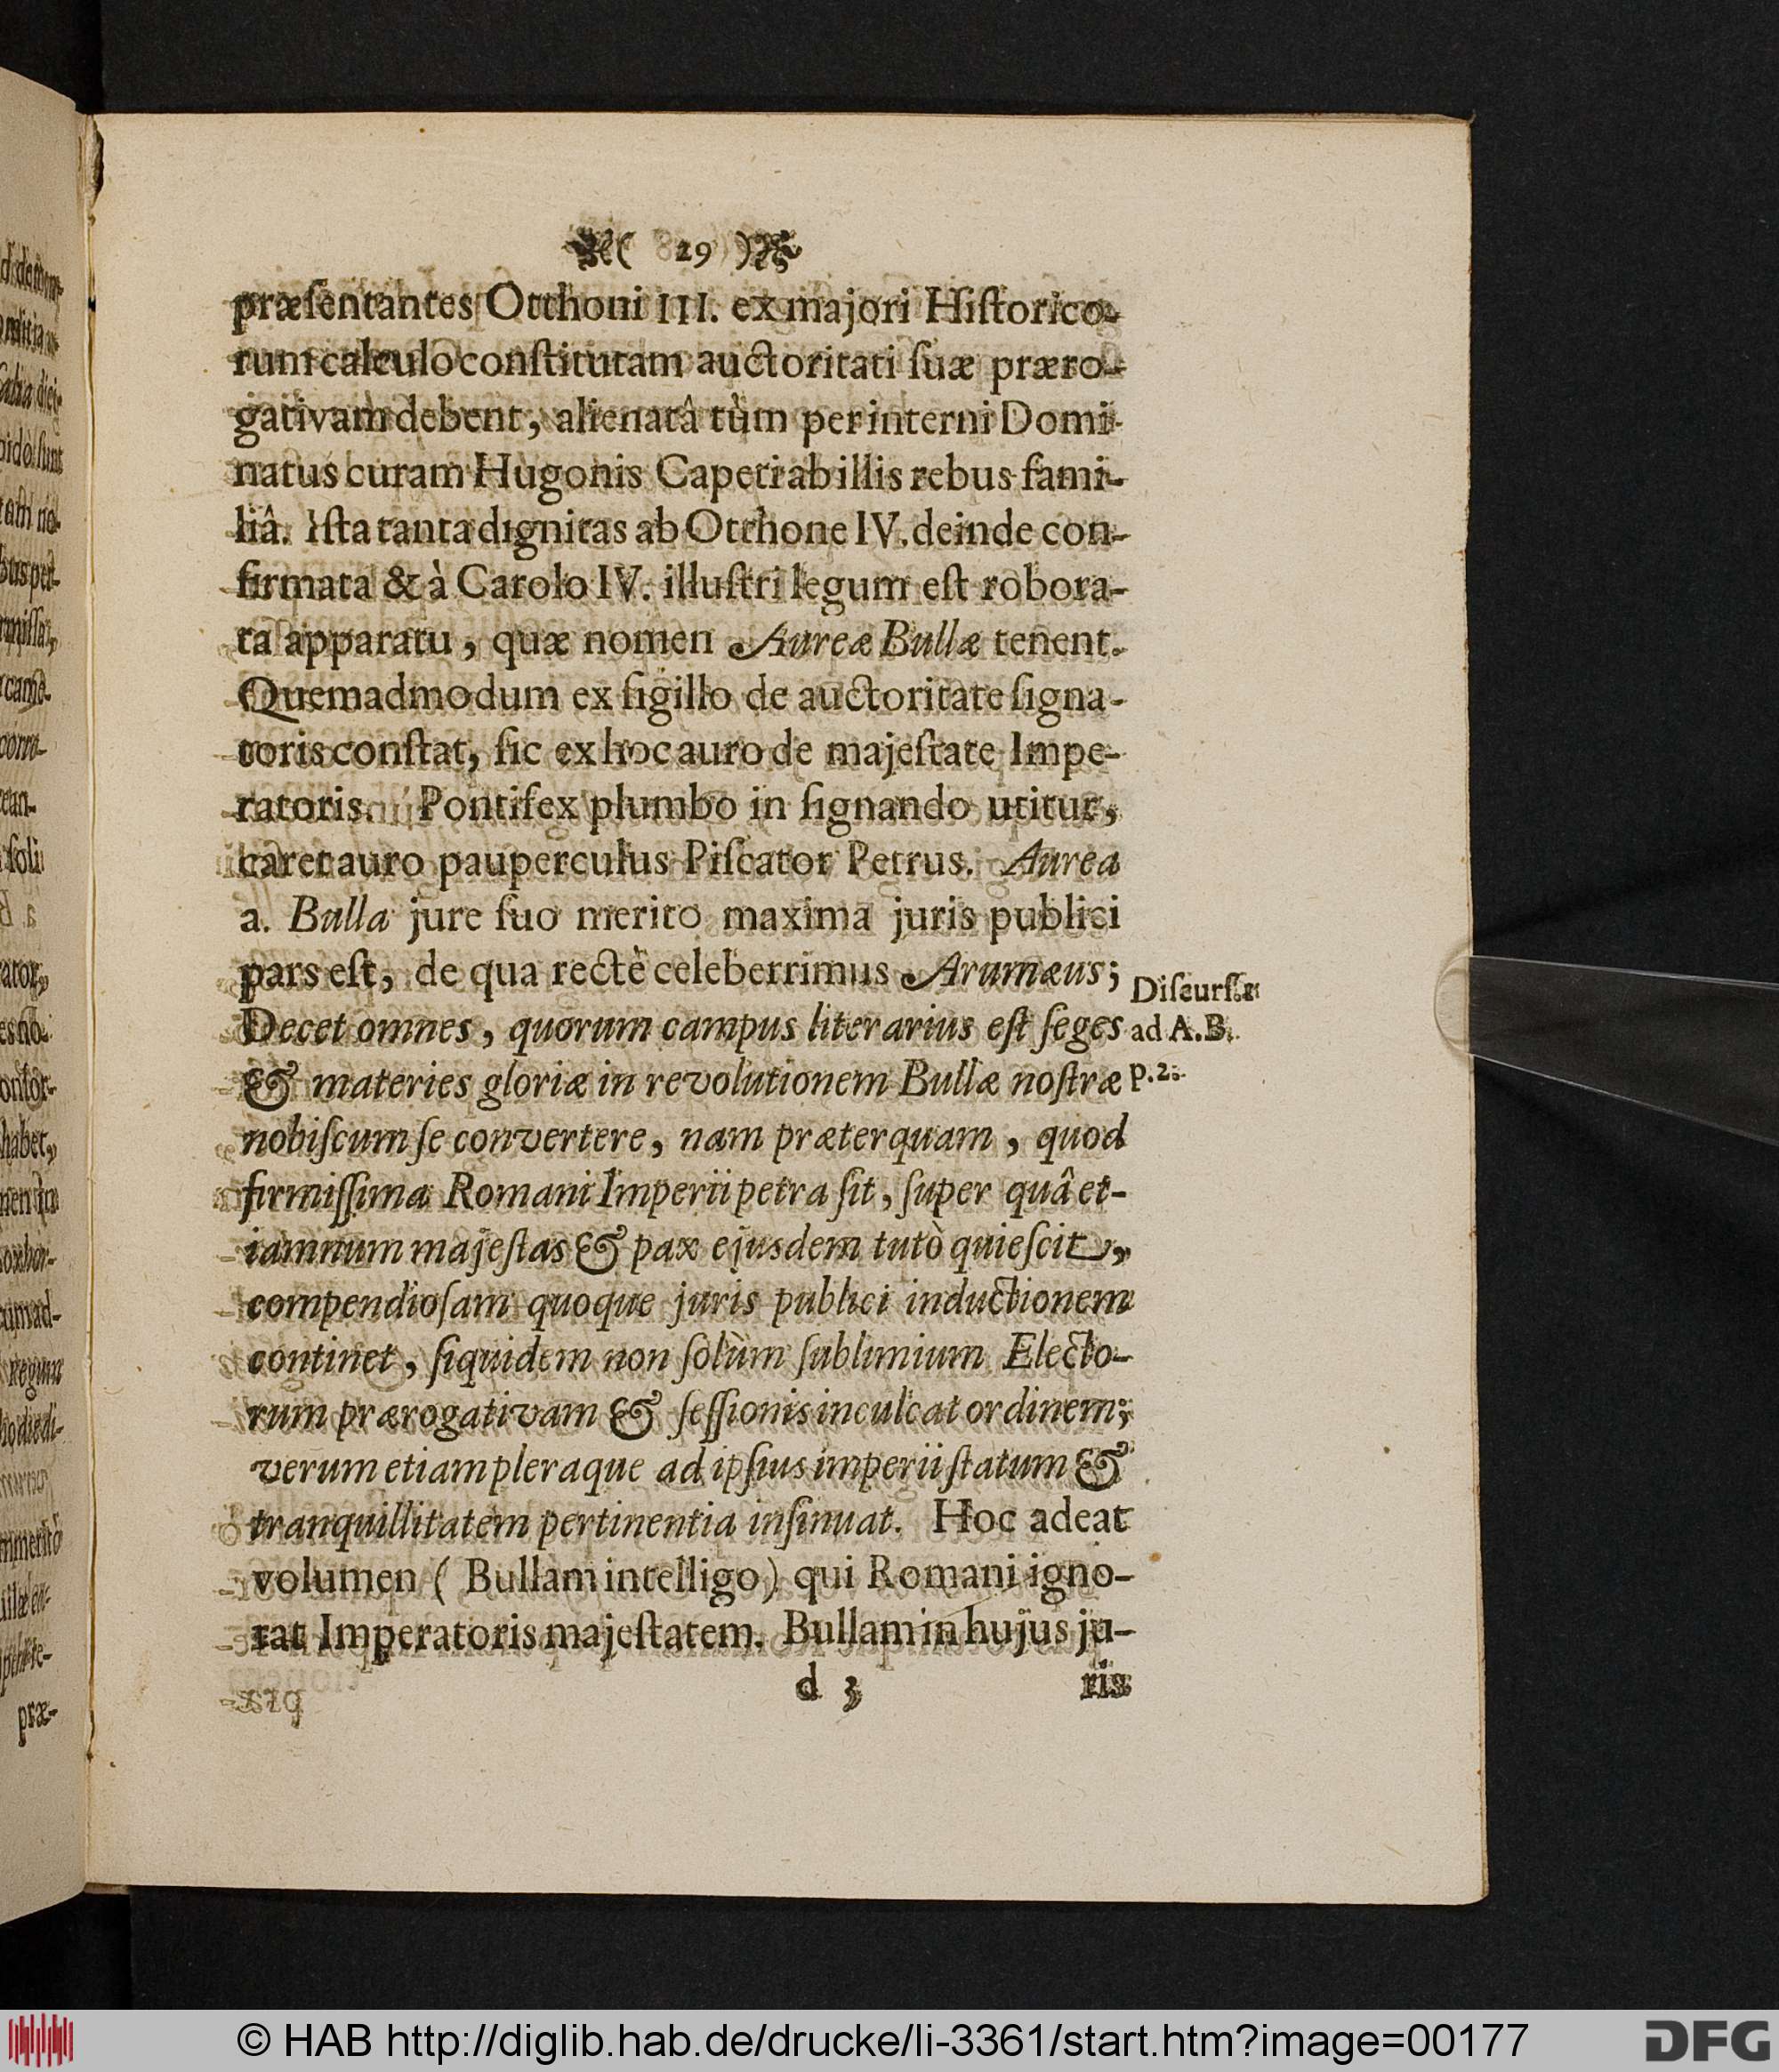 ( 29 )
præſentantes Otthoni III. ex majori Hiſtorico-
rum calculo conſtitutam auctoritati ſuæ præro-
gativam debent, alienatâ tùm per interni Domi-
natus curam Hugonis Capeti ab illis rebus fami-
liâ. Iſta tanta dignitas ab Otthone IV. deinde con-
firmata & à Carolo IV. illuſtri legum eſt robora-
ta apparatu, quæ nomen Aureæ Bullæ tenent.
Quemadmodum ex ſigillo de auctoritate ſigna-
toris conſtat, ſic ex hoc auro de majeſtate Impe-
ratoris. Pontifex plumbo in ſignando utitur,
caret auro pauperculus Piſcator Petrus. Aurea
a. Bulla jure ſuo merito maxima juris publici
pars eſt, de qua rectè celeberrimus Arumæus;
Decet omnes, quorum campus literarius eſt ſeges
& materies gloriæ in revolutionem Bullæ noſtræ
nobiſcum ſe convertere, nam præterquam, quod
firmiſſima Romani Imperii petra ſit, ſuper quâ et-
iamnum majeſtas & pax ejusdem tutò quieſcit,
compendioſam quoque juris publici inductionem
continet, ſiquidem non ſolùm ſublimium Electo-
rum prærogativam & ſeſſionis inculcat ordinem;
verum etiam pleraque ad ipſius imperii ſtatum &
tranquillitatem pertinentia inſinuat. Hoc adeat
volumen ( Bullam intelligo) qui Romani igno-
rat Imperatoris majeſtatem. Bullam in hujus ju-
d 3 ris
ad A.B.
p.2.
præ-
© HAB http://diglib.hab.de/drucke/li-3361/start.htm?image=00177
DFG